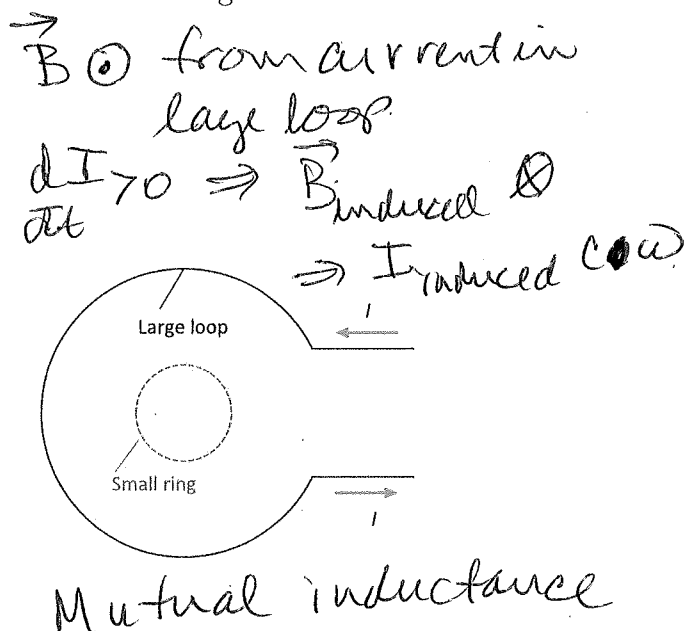 B ⊙ from current in
large loop.
dI/dt > 0 ⇒ B induced ⊗
⇒ I induced CW
I
Large loop
Small ring
I
Mutual inductance